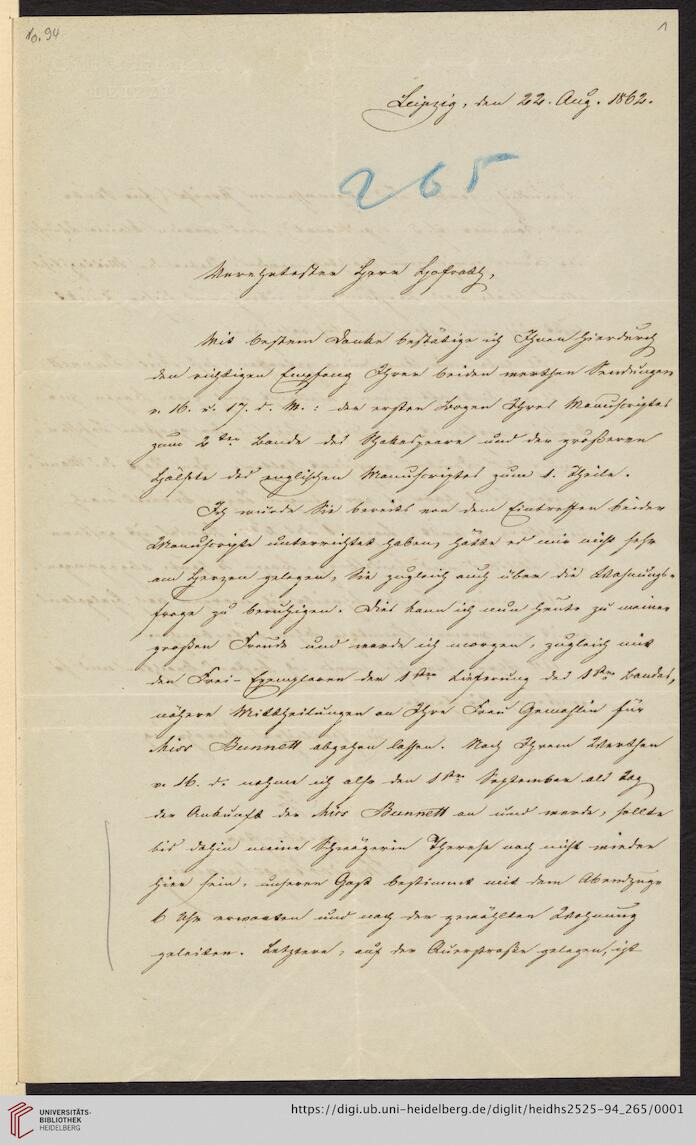 No. 94
1
Leipzig, den 22. Aug. 1862.
265
Verehrtester Herr Hofrath,
Mit bestem Danke bestätige ich Ihnen hierdurch
den richtigen Empfang Ihrer beiden werthen Sendungen
v. 16. u. 17. d. M.: der ersten Bogen Ihres Manuscriptes
zum 2ten Bande des Shakespeare und der größeren
Hälfte des englischen Manuscriptes zum 1. Theile.
Ich würde Sie bereits von dem Eintreffen beider
Manuscripte unterrichtet haben, hätte es mir nicht sehr
am Herzen gelegen, Sie zugleich auch über die Wohnungs-
frage zu beruhigen. Dies kann ich nun heute zu meiner
großen Freude und werde ich morgen, zugleich mit
den Frei-Exemplaren der 1sten Lieferung des 1sten Bandes,
nähere Mittheilungen an Ihre Frau Gemahlin für
Miss Bunnett abgehen lassen. Nach Ihrem Werthen
v. 16. d. nehme ich also den 1sten September als Tag
der Ankunft der Miss Bunnett an und werde, sollte
bis dahin meine Schwägerin Therese noch nicht wieder
hier sein, unseren Gast bestimmt mit dem Abendzuge
6 Uhr erwarten und nach der gewählten Wohnung
geleiten. Letztere, auf der Querstraße gelegen, ist
UNIVERSITÄTS-
BIBLIOTHEK
HEIDELBERG
https://digi.ub.uni-heidelberg.de/diglit/heidhs2525-94_265/0001